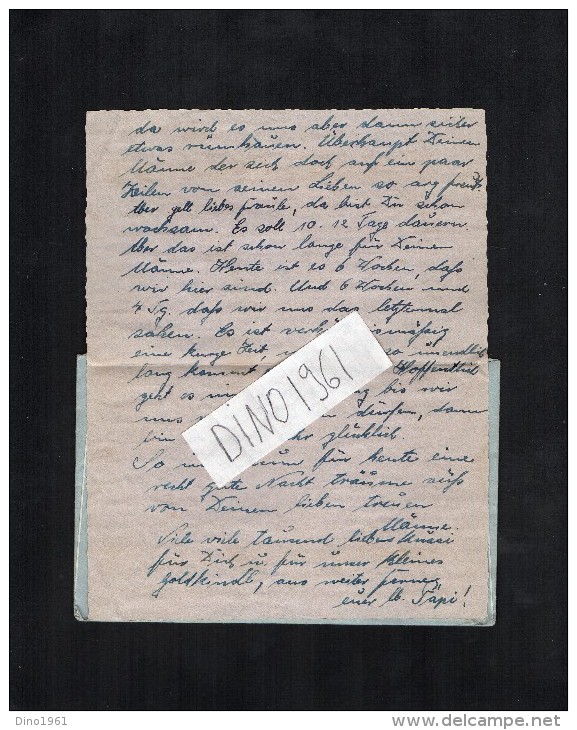 da wird es uns aber dann sicher
etwas
Überhaupt Deinen
Männe der sich doch auf ein paar
Zeilen von seinen Lieben so arg freut.
Aber gell liebes Fraule, da bist Du schon
wachsam. Es soll 10-12 Tage dauern.
Aber das ist schon lange für Deinen
Männe. Heute ist es 6 Wochen, daß
wir hier sind. Und 6 Wochen und
4 Tg. daß wir uns das letztemal
sahen. Es ist
eine kurze Zeit, so unendlich
lang kommt Hoffentlich
geht es bis wir
uns dürfen, dann
bin glücklich.
So für heute eine
recht gute Nacht träume süß
von Deinem lieben treuen
Männe.
Viele viele tausend liebe Bussi
für Dich u. für unser kleines
Goldkindle, aus weiter Ferne
euer lb. Papi!
DINO1961
Dino1961
delcampe.net